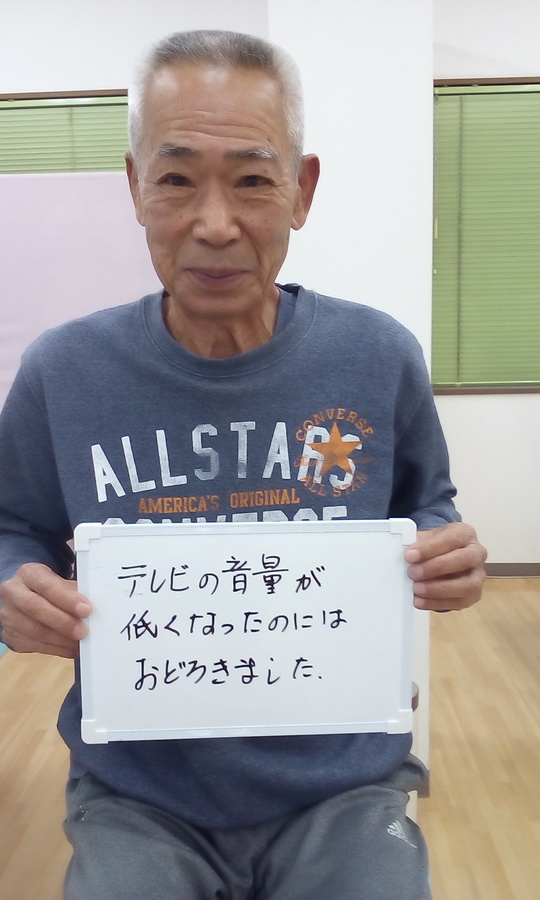 ALL STARS
CONVERSE
ALL STAR
AMERICA'S ORIGINAL
CONVERSE
テレビの音量が
低くなったのには
おどろきました.